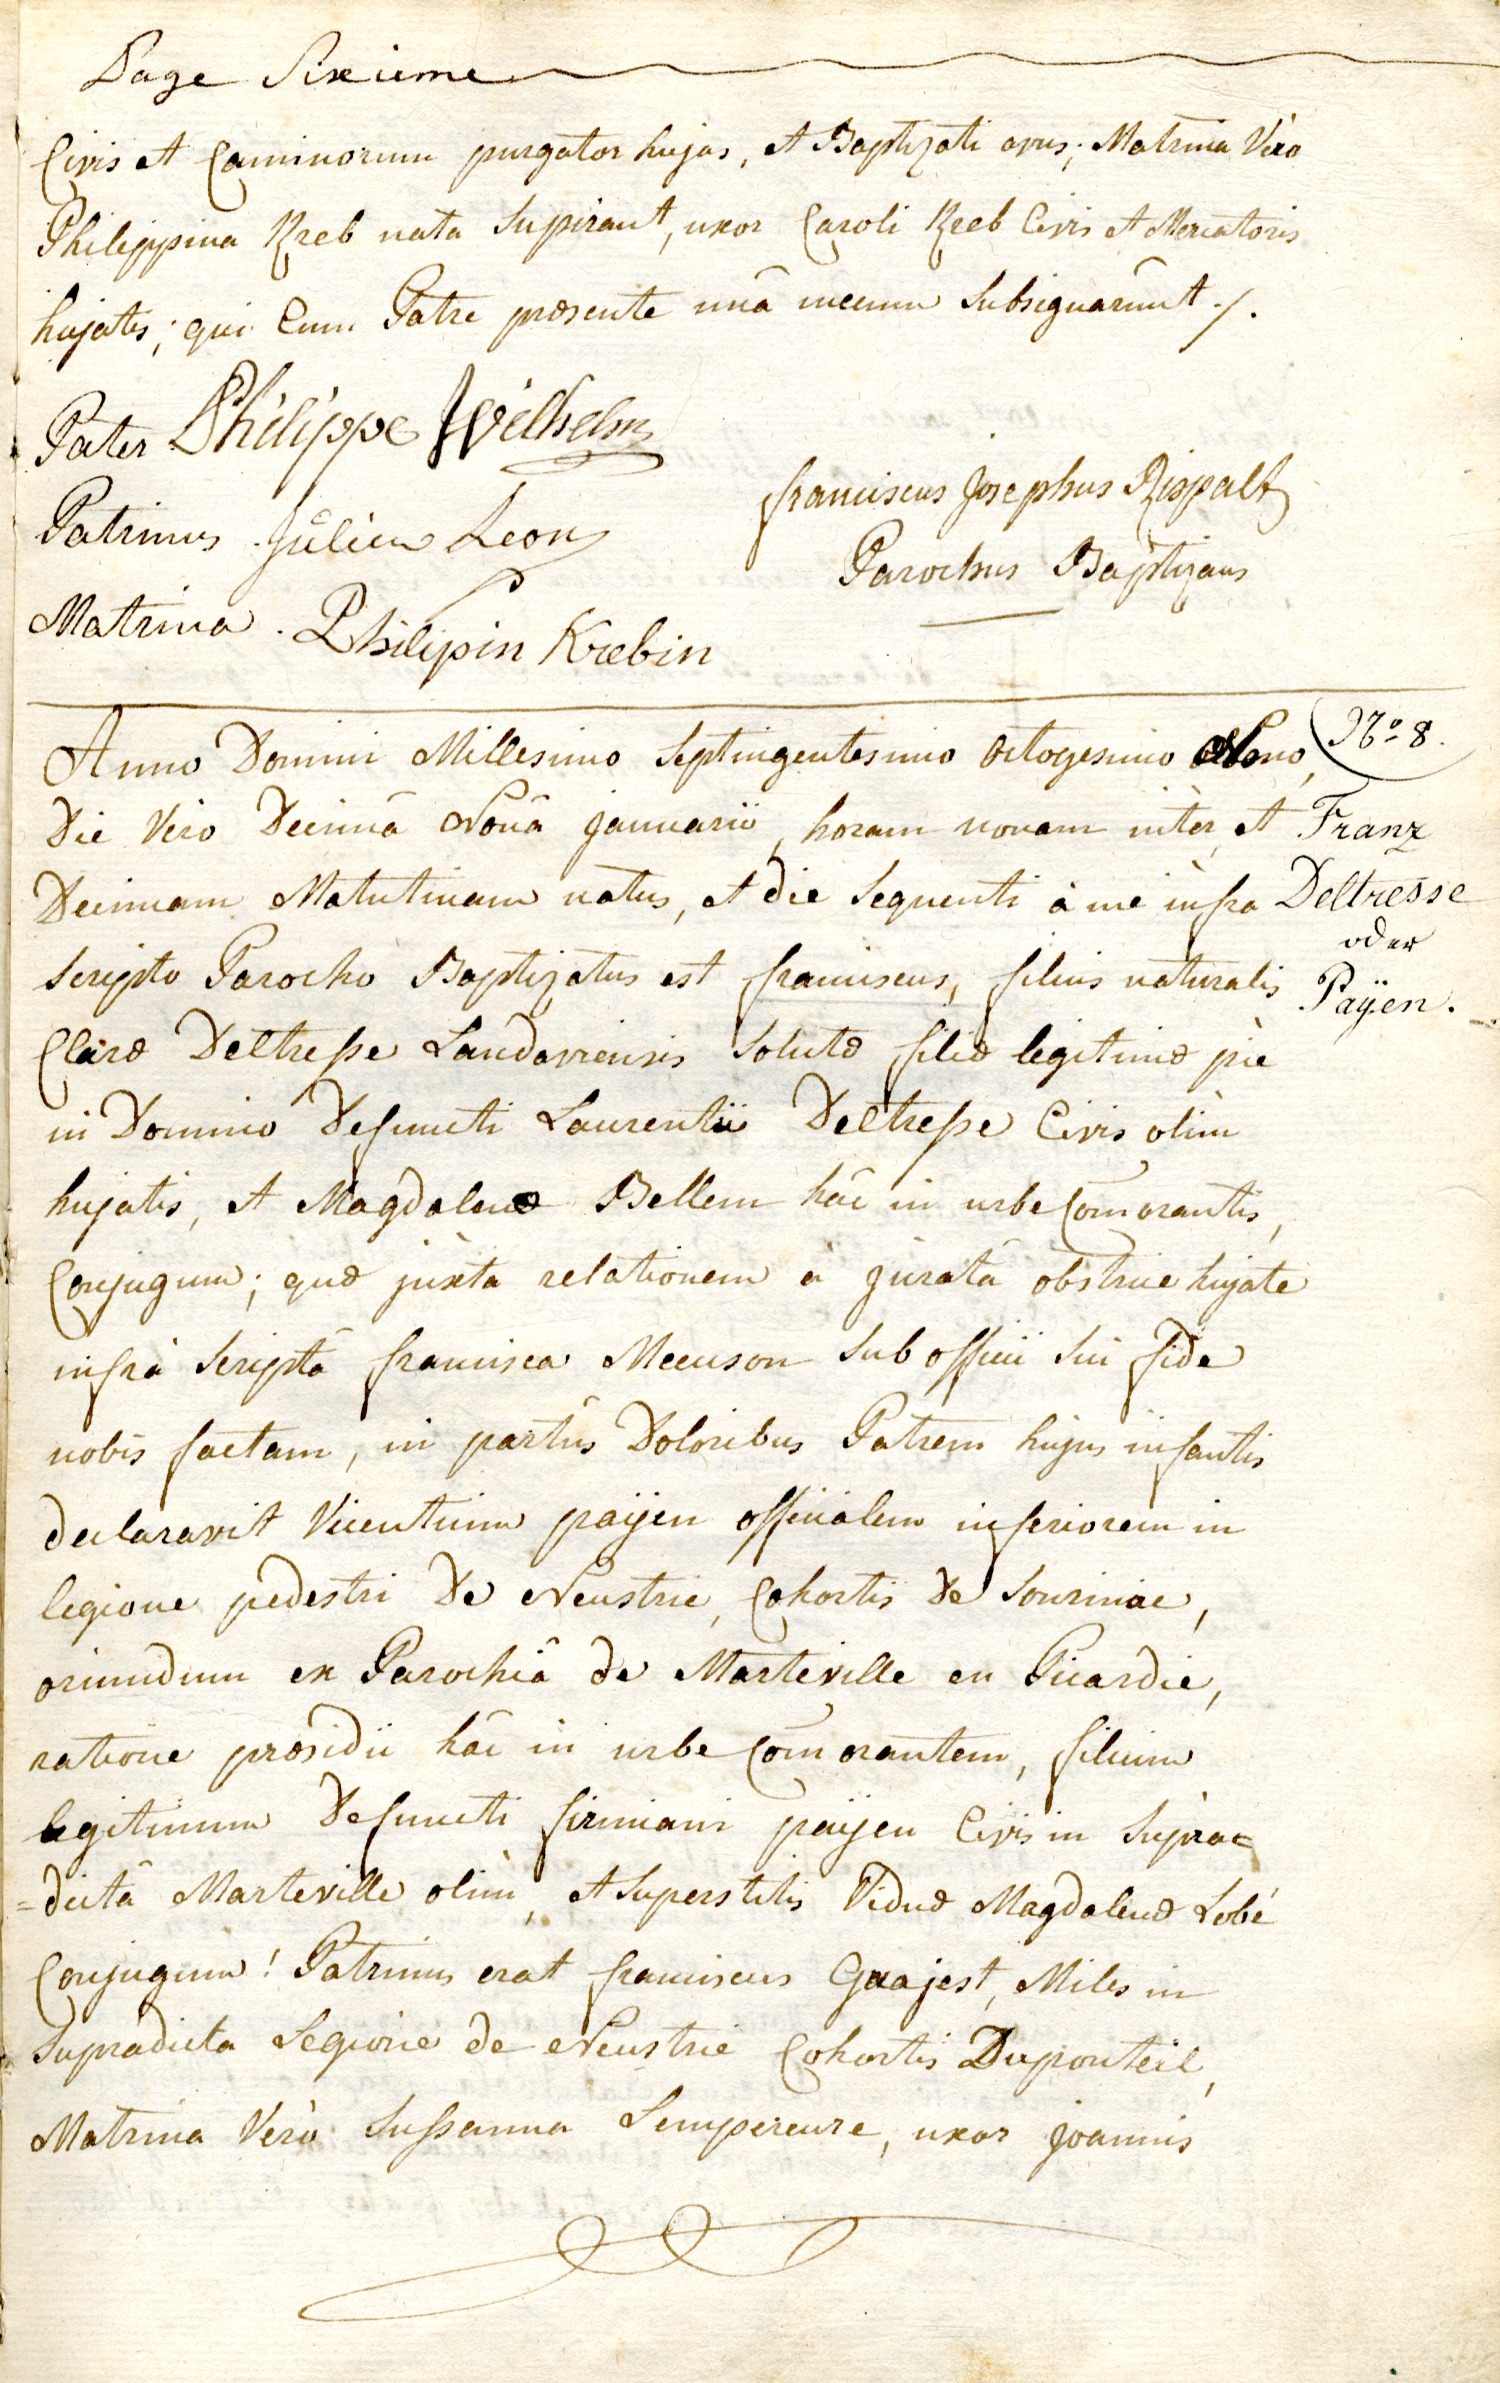 Page Sixieme
Civis et Caminorum purgator hujas, et Baptizati avus; Matrina Vero
Philippina Kreb nata Supirant, uxor Caroli Kreb Civis et Mercatoris
hujatis; qui Cum Patre præsente unâ mecum Subsignarûnt ./.
Pater Philippe Wilhelm
franciscus Josephus Rispalt
Patrinus . Julien Leon
Parochus Baptizans
Matrina . Philipin Krebin
Anno Domini Millesimo Septingentesimo Octogesimo Nono,
No. 8.
Die Vero Decimâ Nonâ januarii, horam nonam inter, et
Franz
Decimam Matutinam natus, et die Sequenti à me infra
Deltresse
oder
Scripto Parocho Baptizatus est franciscus, filius naturalis
Paÿen.
Claræ Deltresse Landaviensis Solutæ filiæ legitimæ piè
in Domino Defuncti Laurentii Deltresse Civis olim
hujatis, et Magdalenæ Bellem hâc in urbe Com̄orantis,
Conjugum; quæ juxta relationem à juratâ obstrice hujate
infrà Scriptâ francisca Meenson Sub officii Sui fide
nobis factam, in partûs Doloribus Patrem hujus infantis
declaravit Vicentium paÿen officialem inferiorem in
legione pedestri De Neustrie, Cohortis De Souriniac,
oriundum ex Parochiâ de Marteville en Picardie,
ratione præsidii hâc in urbe Com̄orantem, filium
legitimum Defuncti firmiani paÿen Civis in Supra=
=dictâ Marteville olim, et Superstitis Viduæ Magdalenæ Lobé
Conjugum! Patrinus erat franciscus Graajest, Miles in
Supradicta Legione de Neustrie Cohortis Duponteil,
Matrina Verò Sussanna Sempereure, uxor joannis